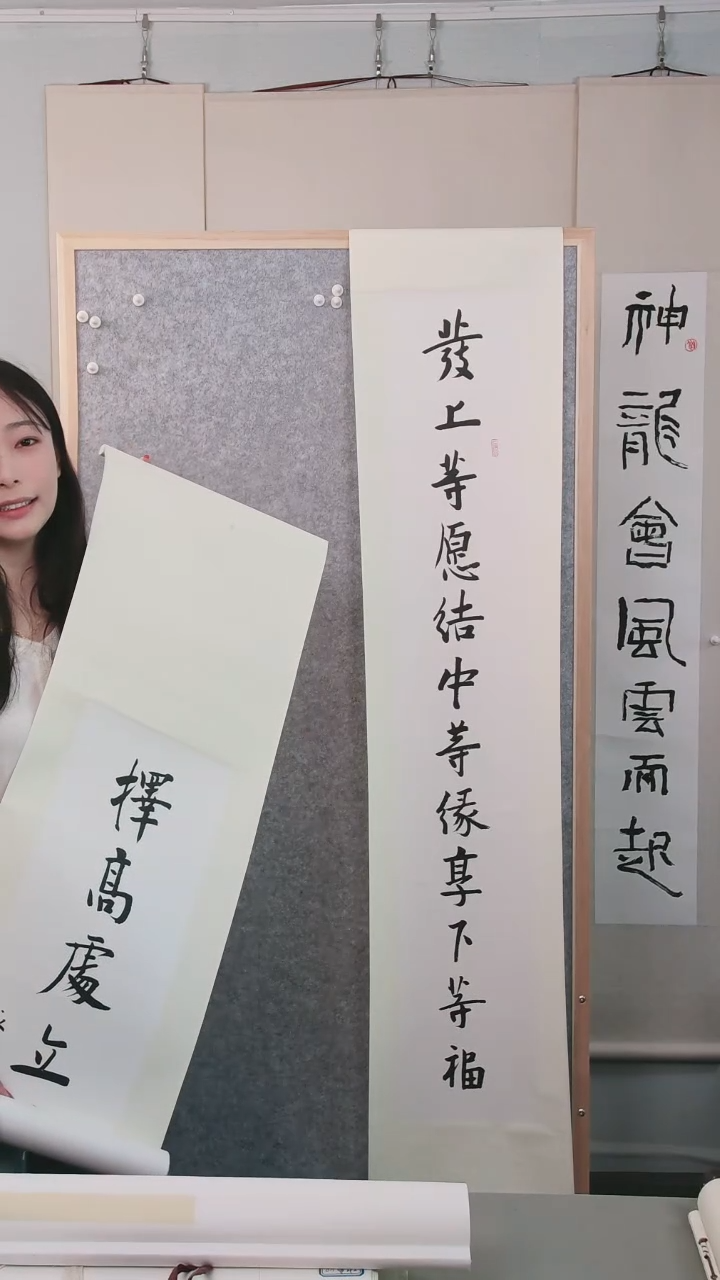 神龍會風雲而起
發上等愿结中等缘享下等福
擇高處立